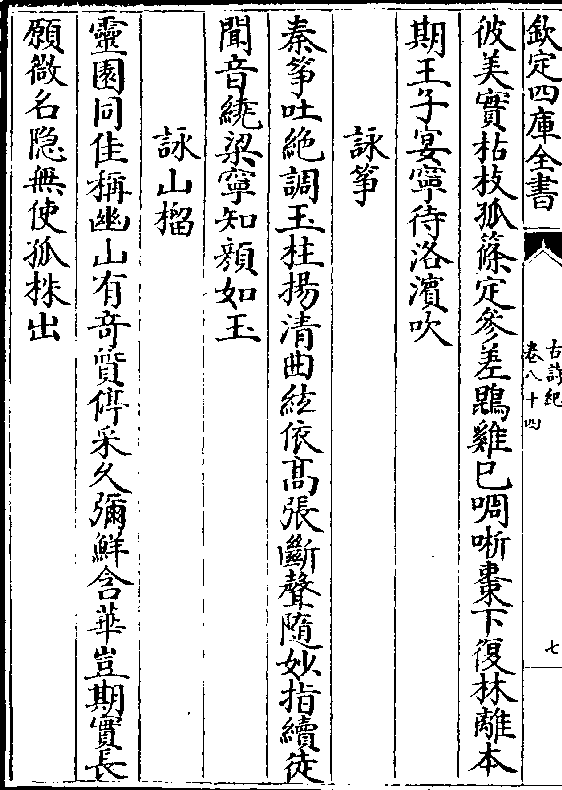 欽定四庫全書
古詩紀
卷八十四
七
彼美實枯枝孤篠定參差鵾雞已啁哳棗下復林離本
期王子宴寧待洛濱吹
詠筝
秦筝吐絶調玉柱揚清曲絃依髙張斷聲隨妙指續徒
聞音繞梁寧知顔如玉
詠山榴
靈園同佳稱幽山有竒質停采久彌鮮含華豈期實長
願微名隐無使孤株出